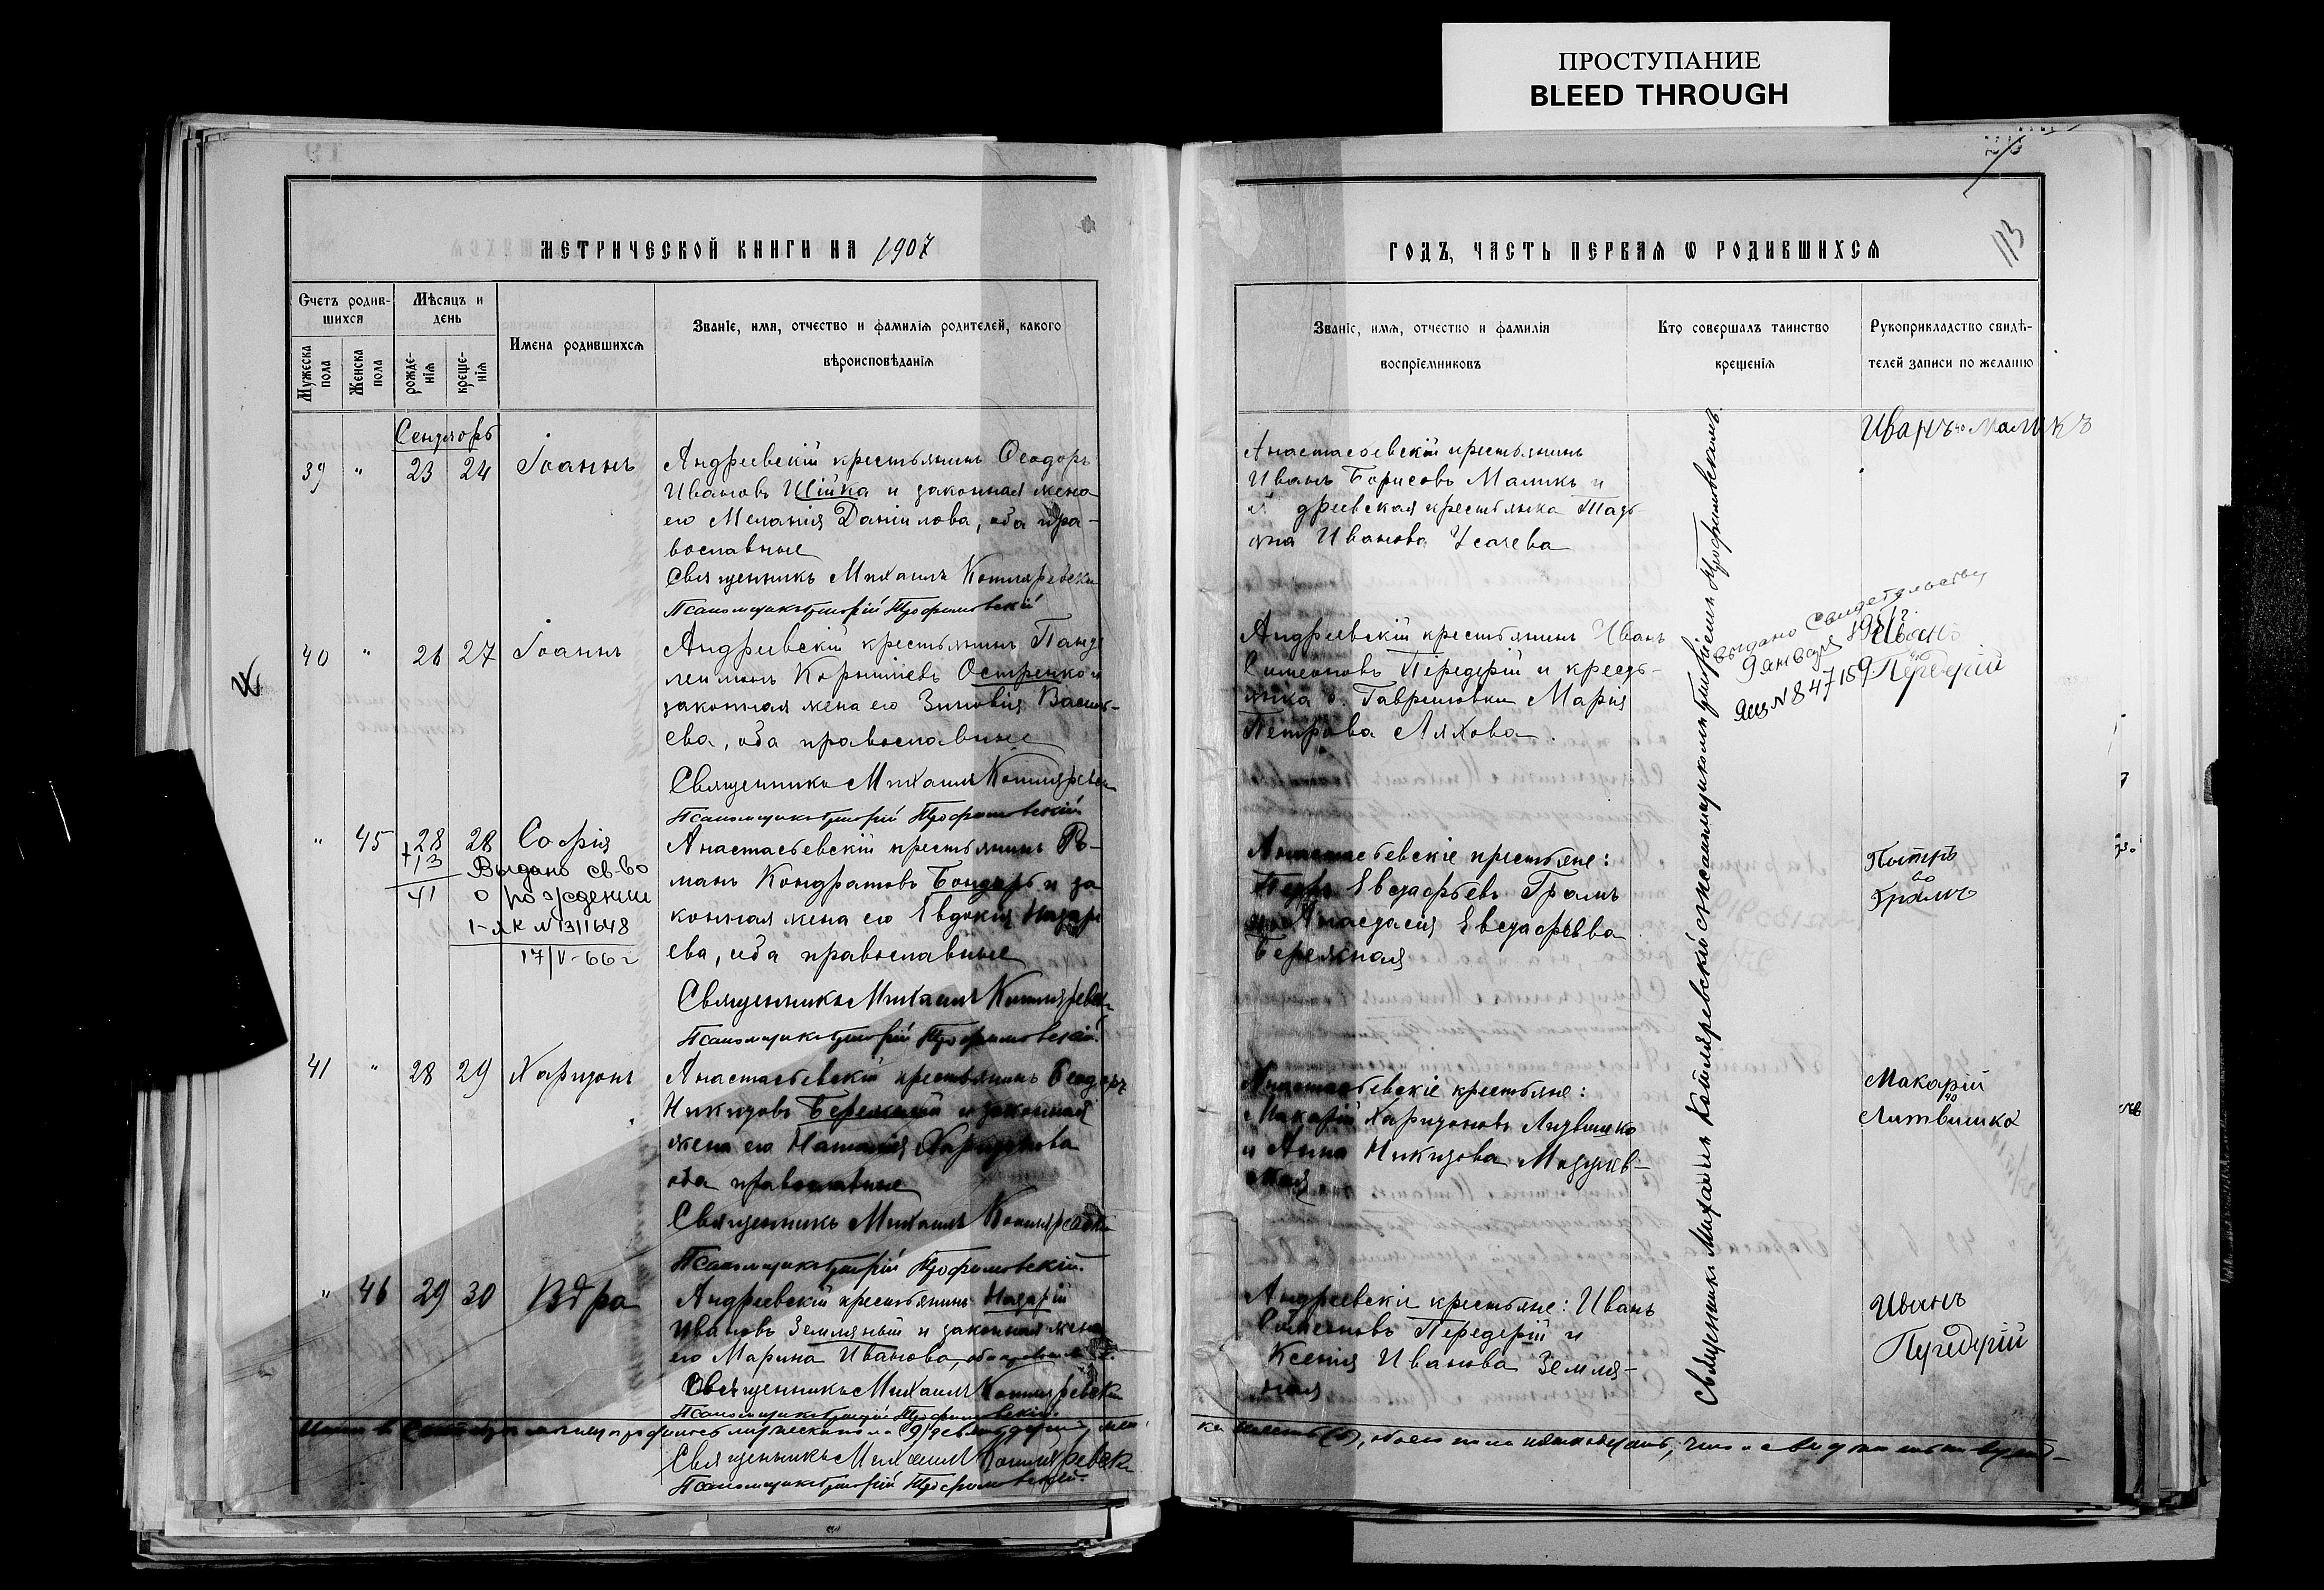 ПРОСТУПАНИЕ
BLEED THROUGH
МЕТРИЧЕСКОЙ КНИГИ НА 1907
Счетъ родив-
шихся
Мѣсяцъ и
день
Имена родившихся
Званіе, имя, отчество и фамилія родителей, какого
вѣроисповѣданія
Мужеска
пола
Женска
пола
рожде-
нія
креще-
нія
Сентябрь
39 " 23 24 Іоаннъ
Андреевскій крестьянинъ Ѳеодоръ
Ивановъ Шійка и законная жена
его Меланія Даніилова, оба пра-
вославные
Священникъ Михаилъ Котляревскій
Псаломщикъ Григорій Трофимовскій
40 " 26 27 Іоаннъ
Андреевскій крестьянинъ Панте
леимонъ Корниліевъ Остренко и
законная жена его Зиновія Василь-
ева, оба православные
Священникъ Михаилъ Котляревскій
Псаломщикъ Григорій Трофимовскій
" 45 28 28 Софія
+13
41
Выдано св-во
о рождении
I-ЯК № 1311648
17/V-66 г
Анастасьевскій крестьянинъ Ро-
манъ Кондратовъ Бондарь и за
конная жена его Евдокія Назарі
ева, оба православные
Священникъ Михаилъ Котляревскій
Псаломщикъ Григорій Трофимовскій
41 " 28 29 Харитонъ
Анастасьевскій крестьянинъ Ѳеодоръ
Никитовъ Бережный и законная
жена его Наталія Харитонова
оба православные
Священникъ Михаилъ Котляревскій
Псаломщикъ Григорій Трофимовскій
" 46 29 30 Вѣра
Андреевскій крестьянинъ Назарій
Ивановъ Земляный и законная жена
его Марина Иванова, оба
Священникъ Михаилъ Котляревскій
Псаломщикъ Григорій Трофимовскій
Священникъ Михаилъ Котляревскій
Псаломщикъ Григорій Трофимовскій
ГОДЪ, ЧАСТЬ ПЕРВАЯ Ѡ РОДИВШИХСЯ
113
Званіе, имя, отчество и фамилія
воспріемниковъ
Кто совершалъ таинство
крещенія
Рукоприкладство свидѣ-
телей записи по желанію
Анастасьевскій крестьянинъ
Иванъ Борисовъ Маликъ и
дреевская крестьянка Тать
яна Иванова Усачева
Иванъ Маликъ
Андреевскій крестьянинъ Иванъ
Симеоновъ Передерій и кресть-
янка с. Гавриловки Марія
Петрова Ляхова.
выдано свидетельство
9 января 1951 г.
№ 847159
Иванъ
Передерій
Анастасьевскіе крестьяне:
Петръ Евстафьевъ Громъ
и Анастасія Евстафьева
Бережная
Петръ
Громъ
Анастасьевскіе крестьяне:
Макарій Харитоновъ Литвишко
и Анна Никитова
Макарій
Литвишко
Андреевскіе крестьяне: Иванъ
Симеоновъ Передерій и
Ксенія Иванова Земля-
ная
Иванъ
Передерій
Священникъ Михаилъ Котляревскій съ псаломщикомъ Григоріемъ Трофимовскимъ